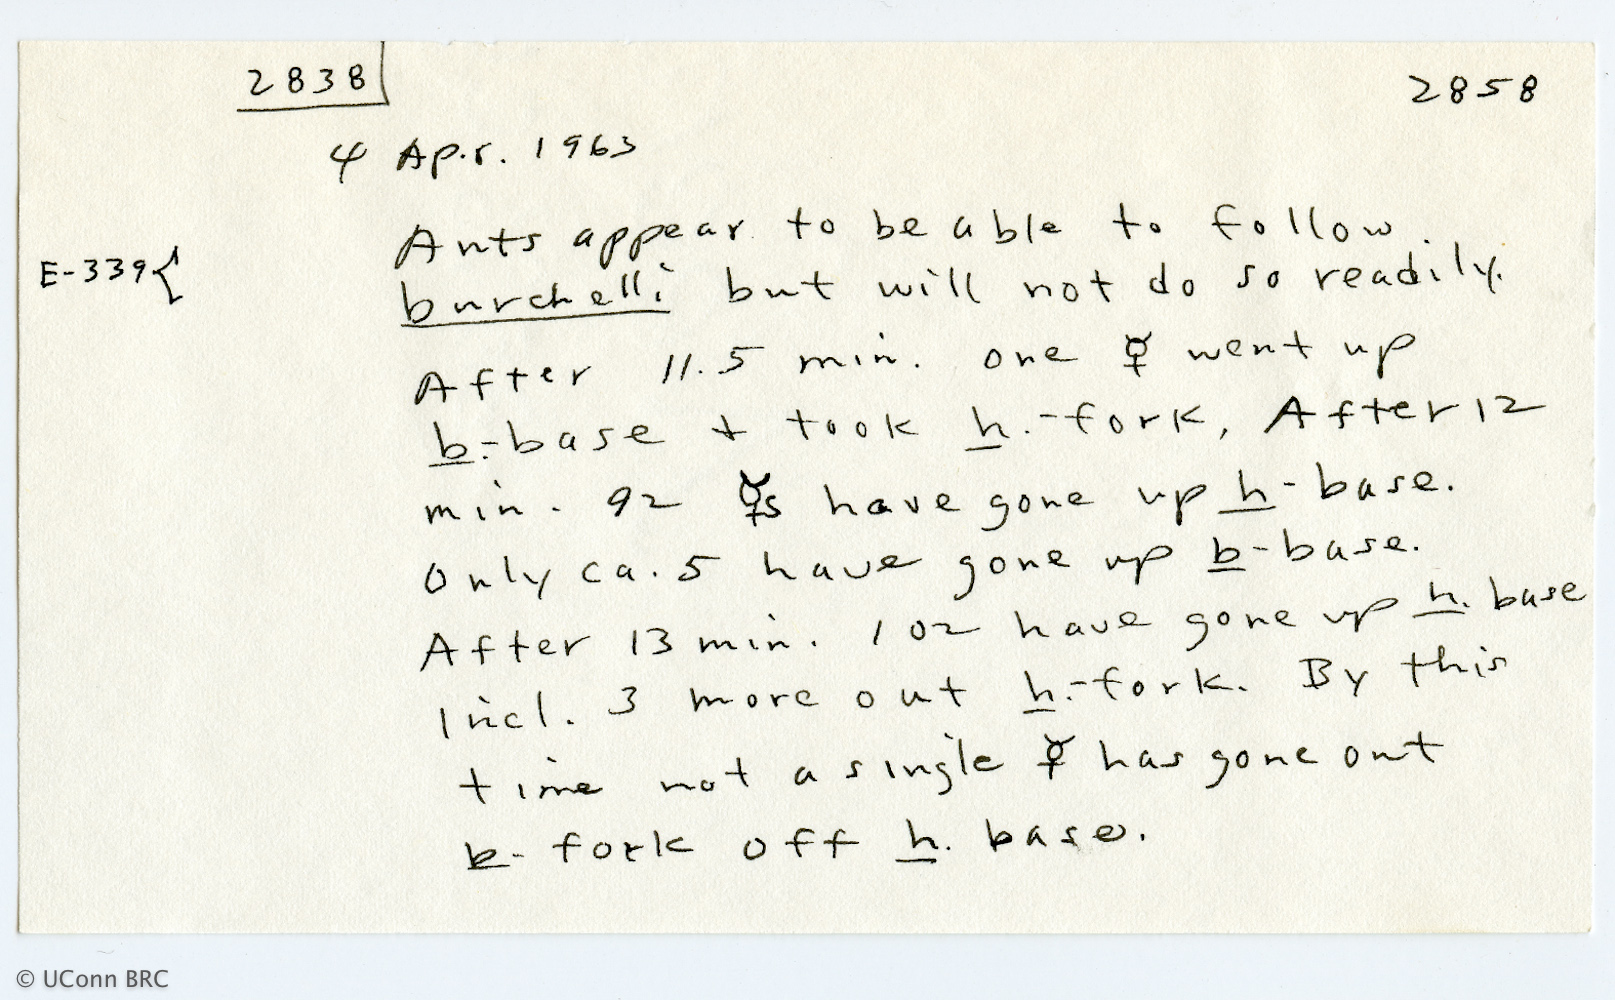 2838
2858
4 Apr. 1963
Ants appear to be able to follow
E-339{
burchelli but will not do so readily.
After 11.5 min. one ☿ went up
b.-base + took h.-fork, After 12
min. 92 ☿s have gone up h-base.
Only ca. 5 have gone up b-base.
After 13 min. 102 have gone up h. base
incl. 3 more out h.-fork. By this
time not a single ☿ has gone out
b- fork off h. base.
© UConn BRC